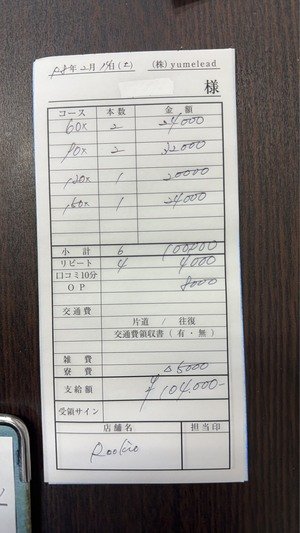 R8年 2月 14日(土) (株) yumelead
様
コース 本数 金額
60分 2 24000
90分 2 32000
120分 1 20000
150分 1 24000
小計 6 100000
リピート 4 4000
口コミ10分
OP 8000
交通費
片道 / 往復
交通費領収書(有・無)
雑費
寮費
支給額 ¥104.000-
受領サイン
店舗名 担当印
Rookie